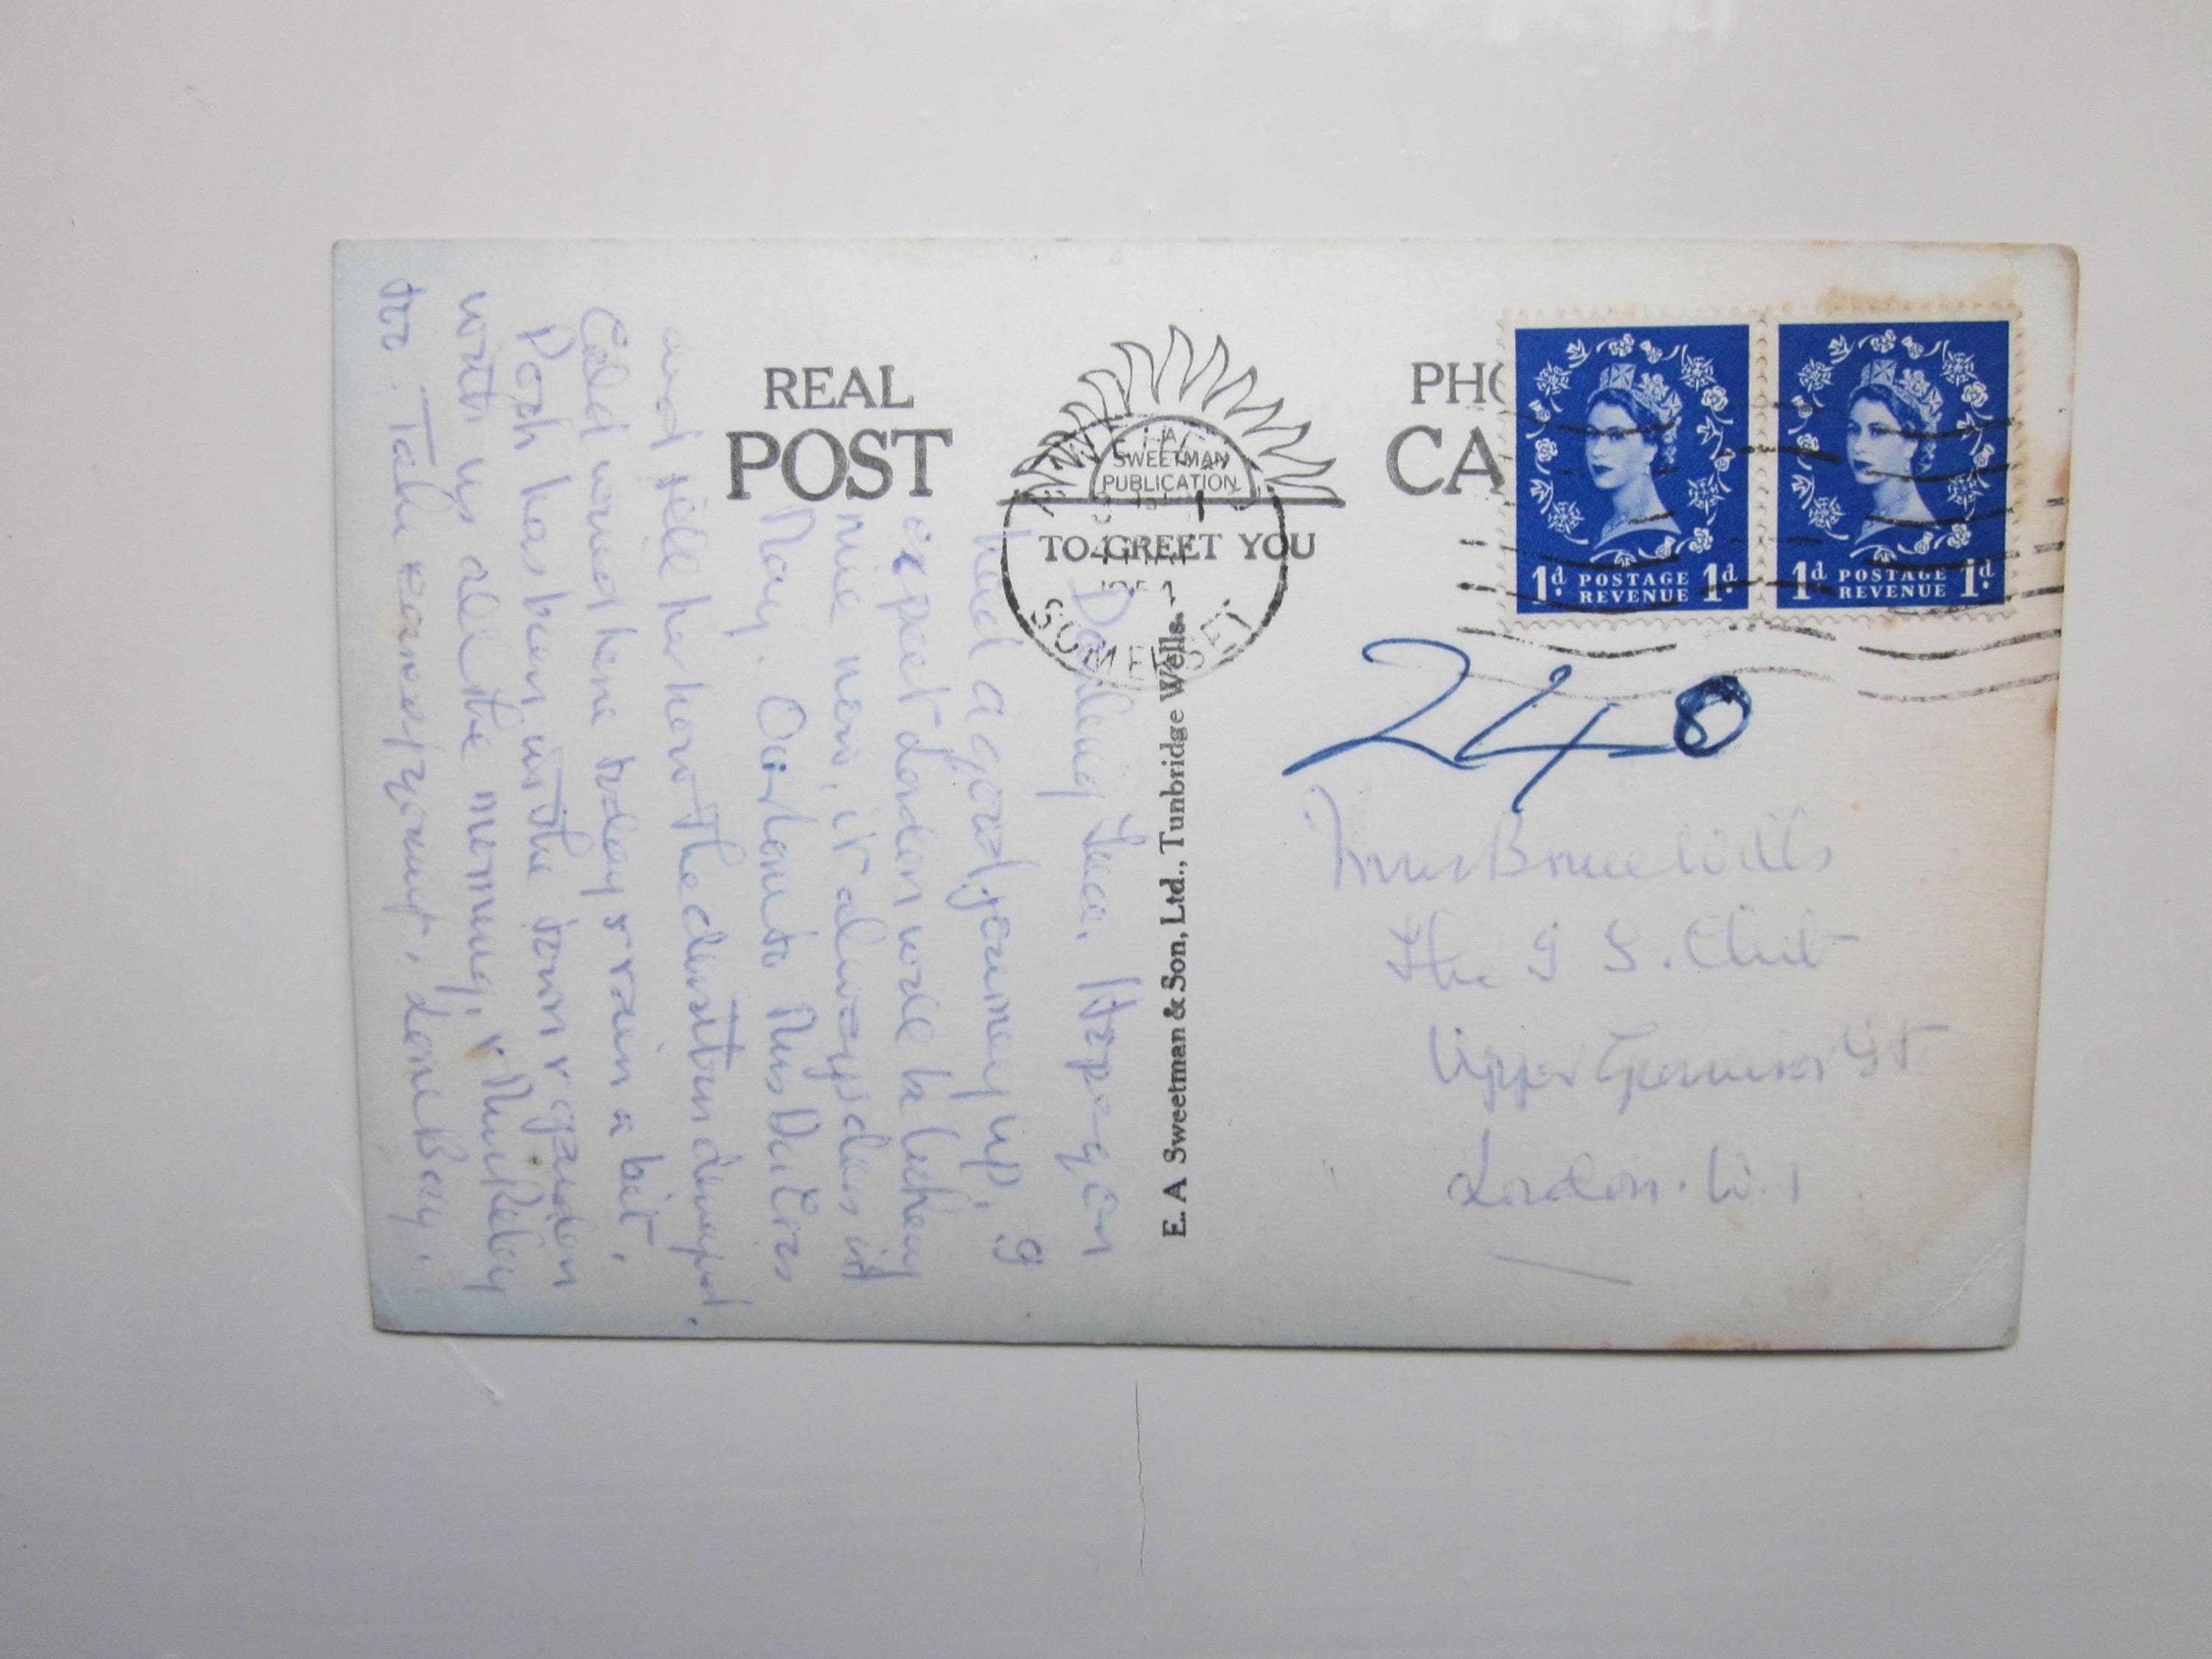 REAL PHO
POST CA
E. A.
SWEETMAN
PUBLICATION
TO GREET YOU
SOMERSET
1d POSTAGE REVENUE 1d.
1d POSTAGE REVENUE 1d.
240
E. A Sweetman & Son, Ltd., Tunbridge Wells.
Bruce Wills
The I S. Club
Upper Grosvenor St
London. W. 1
Darling Hope you
had a good journey up, I
expect London will be looking
nice now, it always does in
May. Our love to Miss Davies
and tell her how the
Cold wind here today & rain a bit.
Pogh has been in the town & garden
with us all the morning, &
too. Take care of yourself, Love Bay.